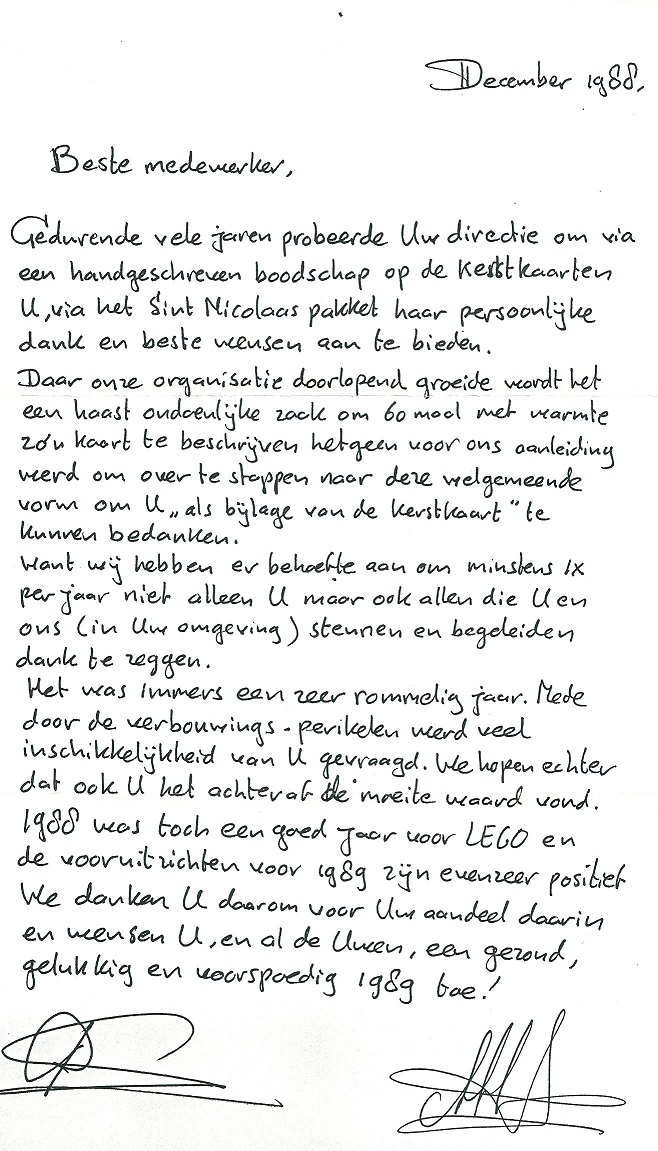 December 1988.
Beste medewerker,
Gedurende vele jaren probeerde Uw directie om via
een handgeschreven boodschap op de Kerstkaarten
U, via het Sint Nicolaas pakket haar persoonlijke
dank en beste wensen aan te bieden.
Daar onze organisatie doorlopend groeide wordt het
een haast ondoenlijke zaak om 60 maal met warmte
zo'n kaart te beschrijven hetgeen voor ons aanleiding
werd om over te stappen naar deze welgemeende
vorm om U „als bijlage van de kerstkaart" te
kunnen bedanken.
Want wij hebben er behoefte aan om minstens 1x
per jaar niet alleen U maar ook allen die U en
ons (in Uw omgeving) steunen en begeleiden
dank te zeggen.
Het was immers een zeer rommelig jaar. Mede
door de verbouwings-perikelen werd veel
inschikkelijkheid van U gevraagd. We hopen echter
dat ook U het achteraf de moeite waard vond.
1988 was toch een goed jaar voor LEGO en
de vooruitzichten voor 1989 zijn evenzeer positief
We danken U daarom voor Uw aandeel daarin
en wensen U, en al de Uwen, een gezond,
gelukkig en voorspoedig 1989 toe!